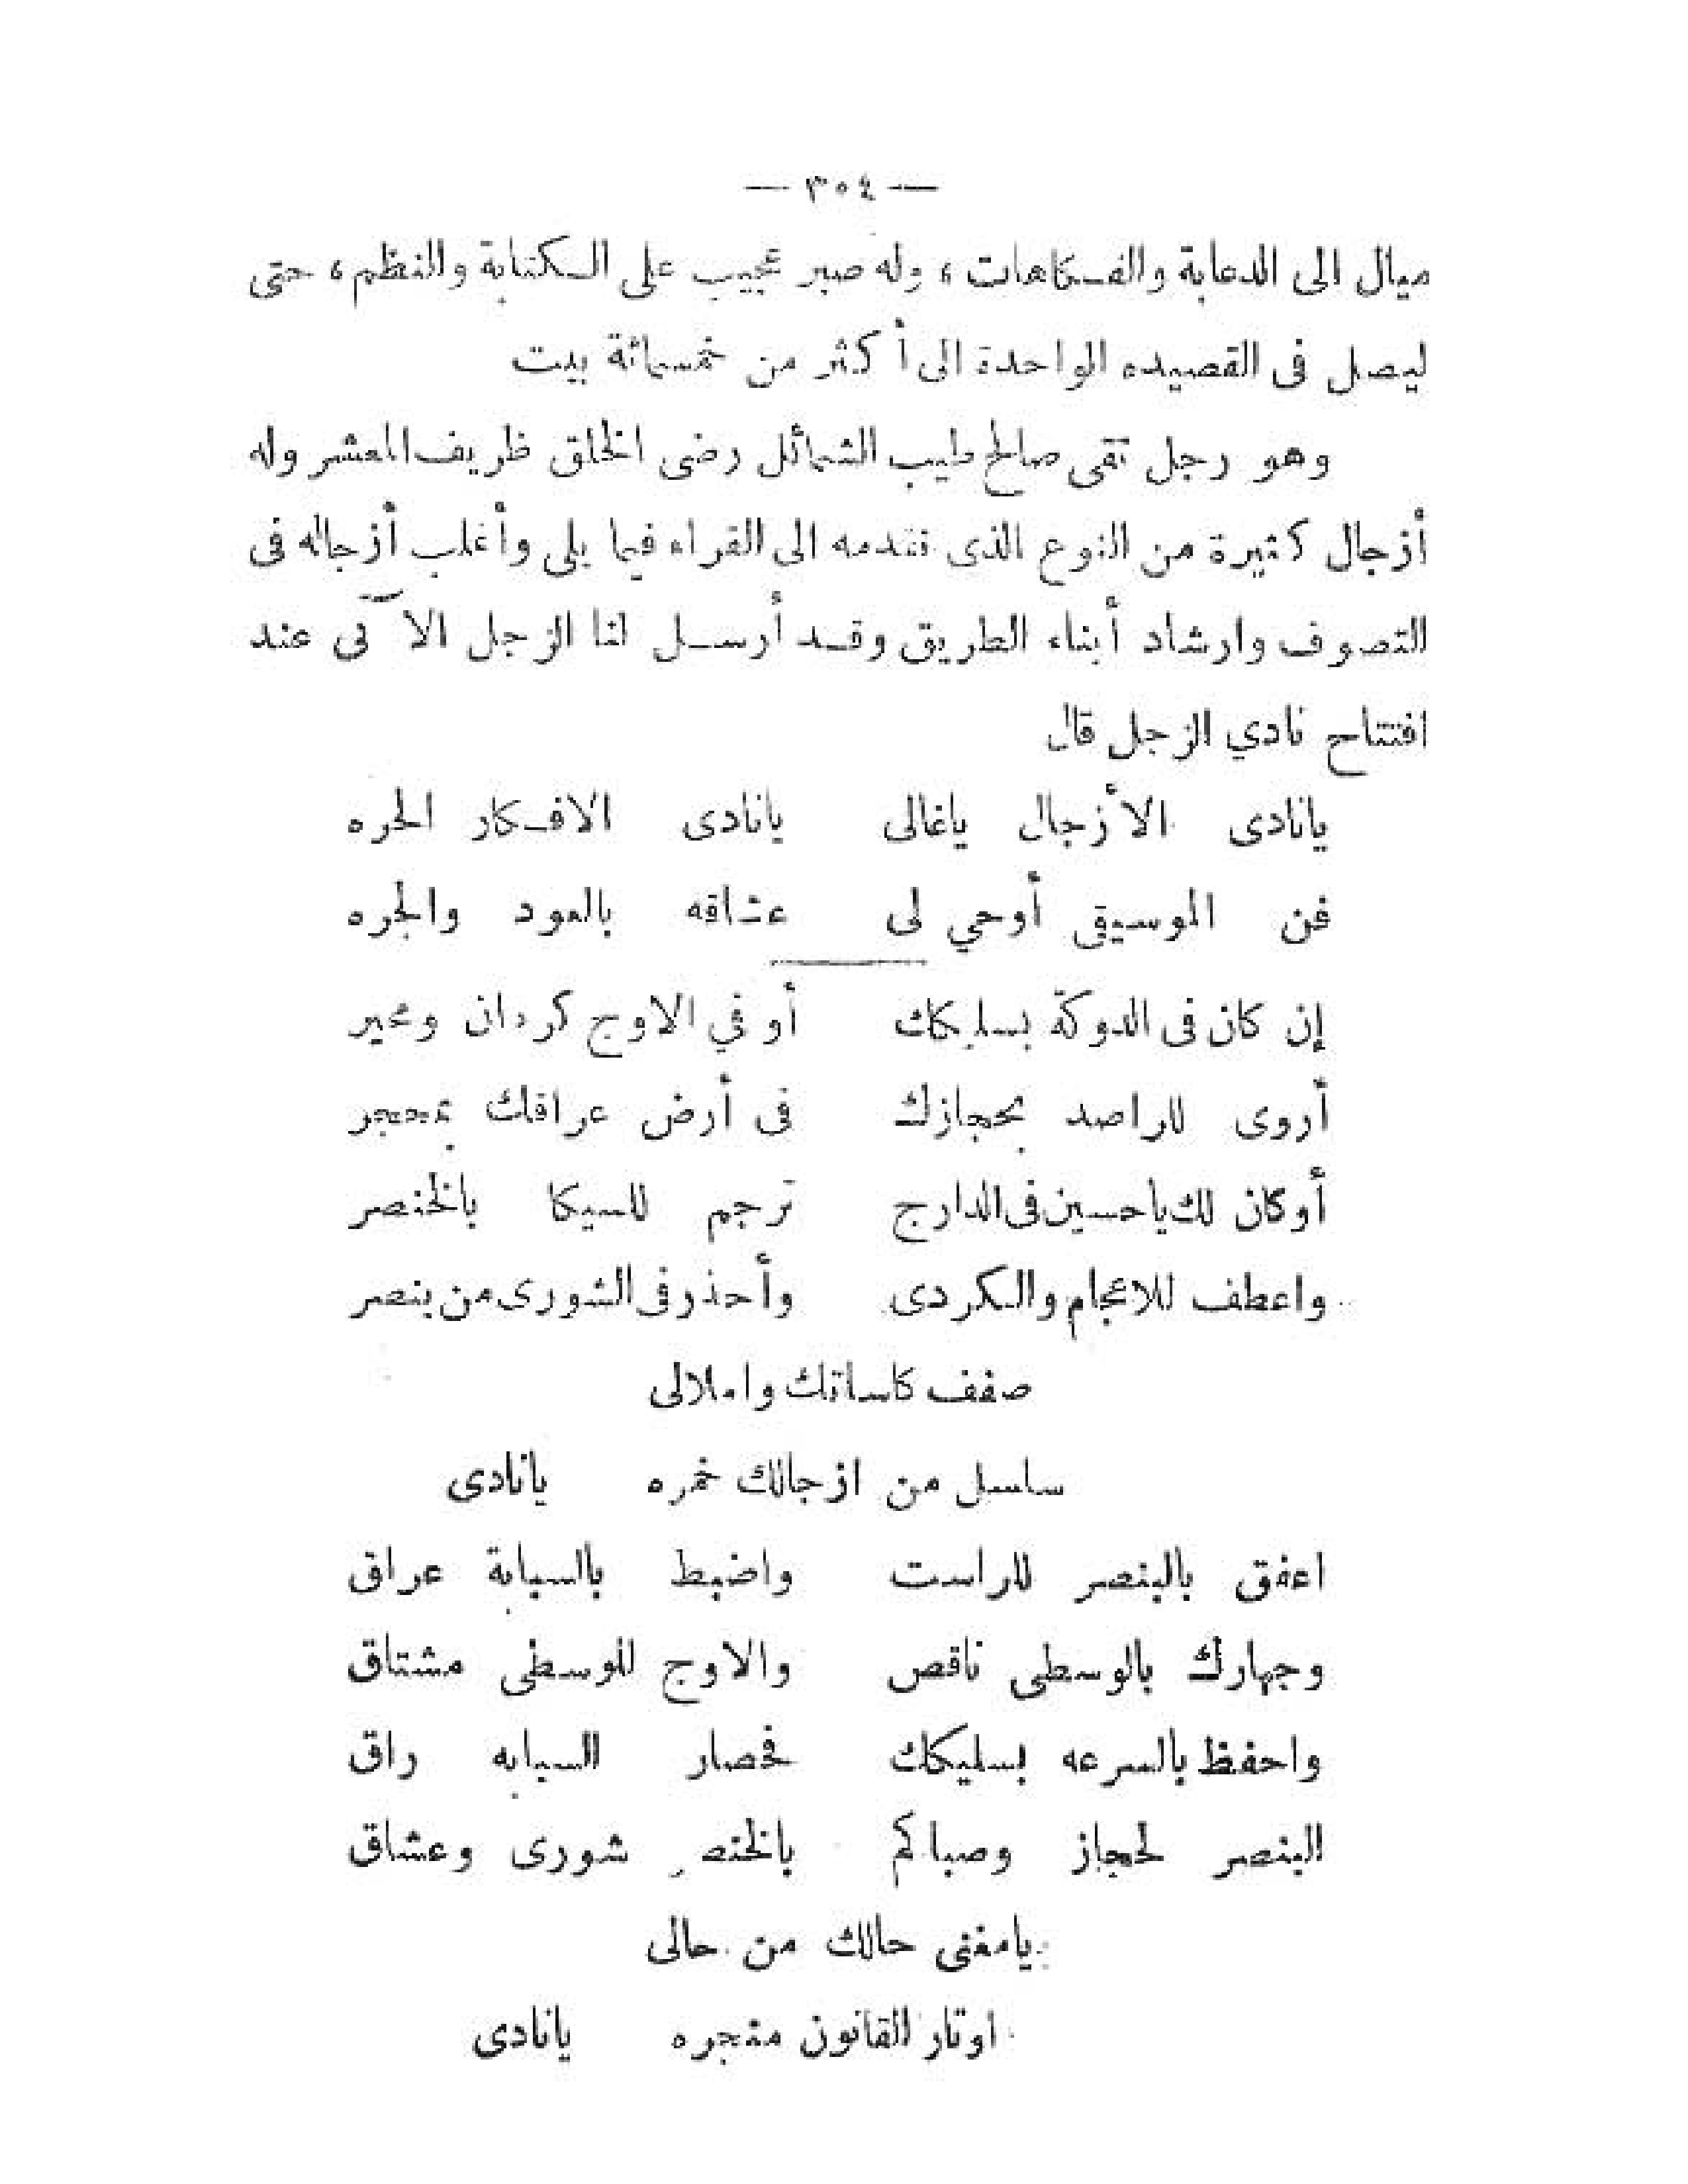 — ٣٥٤ —
ميال الى الدعابة والفكاهات ، وله صبر عجيب على الكتابة والنظم ، حتى
ليصل فى القصيده الواحدة الى أكثر من خمسمائة بيت
وهو رجل تقى صالح طيب الشمائل رضى الخلق ظريف المعشر وله
أزجال كثيرة من النوع الذى نقدمه الى القراء فيما يلى وأغلب أزجاله فى
التصوف وارشاد أبناء الطريق وقد أرسل لنا الزجل الآتى عند
افتتاح نادي الزجل قال
يانادى الأزجال ياغالى يانادى الافكار الحره
فن الموسيقى أوحي لى عشاقه بالعود والجره
إن كان فى الدوكة بسليكك أو في الاوج كردان ومحير
أروى للراصد بحجازك فى أرض عراقك
أوكان لك ياحسين فى الدارج ترجم للسيكا بالخنصر
واعطف للاعجام والكردى وأحذر فى الشورى من بنصر
صفف كاساتك واملالى
سلسل من ازجالك خمره يانادى
اعفق بالبنصر للراست واضبط بالسبابة عراق
وجهارك بالوسطى ناقص والاوج للوسطى مشتاق
واحفظ بالسرعه بسليكك فحصار السبابه راق
البنصر لحجاز وصباكم بالخنصر شورى وعشاق
يامغنى حالك من حالى
اوتار القانون منجره يانادى